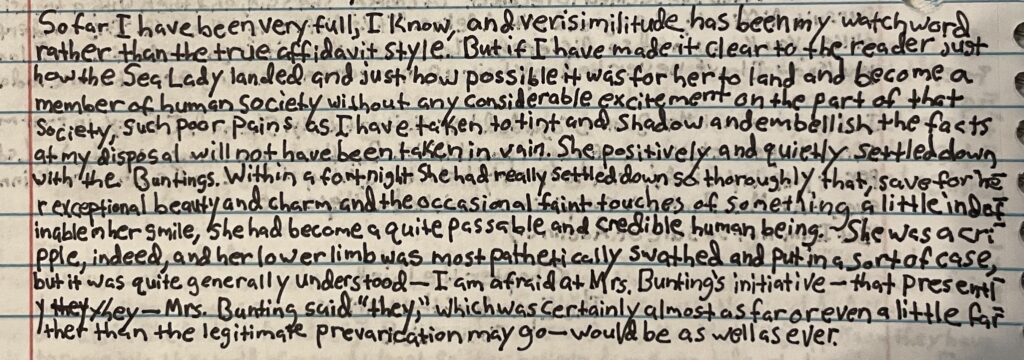 So far I have been very full, I know, and verisimilitude has been my watchword
rather than the true affidavit style. But if I have made it clear to the reader just
how the Sea Lady landed and just how possible it was for her to land and become a
member of human society without any considerable excitement on the part of that
society, such poor pains as I have taken to tint and shadow and embellish the facts
at my disposal will not have been taken in vain. She positively and quietly settled down
with the Buntings. Within a fortnight she had really settled down so thoroughly that, save for he
r exceptional beauty and charm and the occasional faint touches of something a little indef
inable in her smile, she had become a quite passable and credible human being. She was a cri
pple, indeed, and her lower limb was most pathetically swathed and put in a sort of case,
but it was quite generally understood—I am afraid at Mrs. Bunting's initiative—that presentl
y they they—Mrs. Bunting said "they," which was certainly almost as far or even a little far
ther than the legitimate prevarication may go—would be as well as ever.